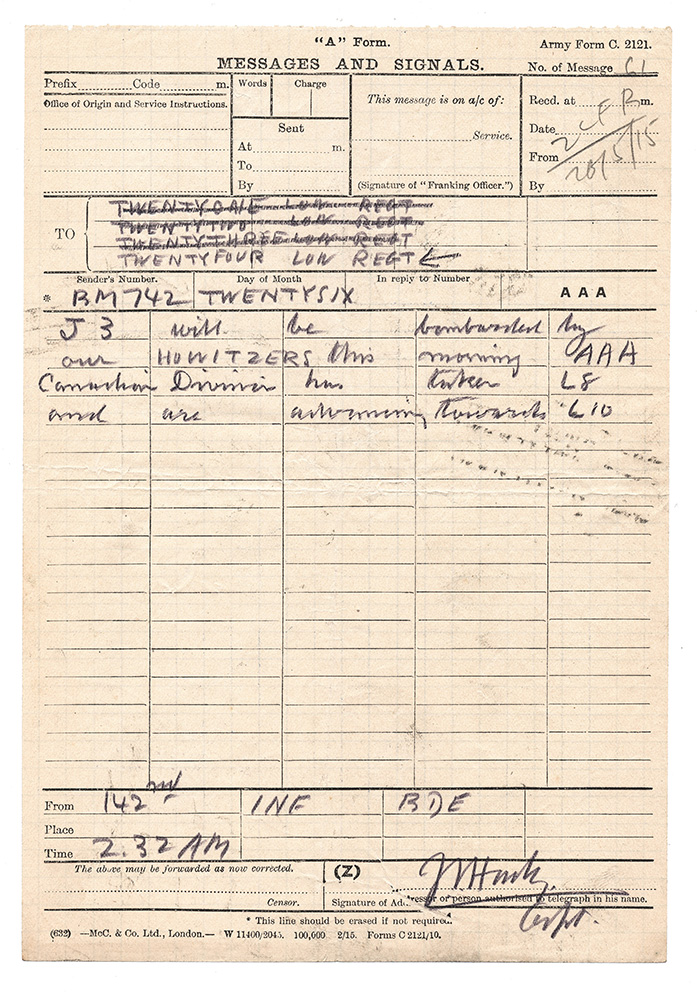 "A" Form.
Army Form C. 2121.
MESSAGES AND SIGNALS.
No. of Message 61
Prefix Code m.
Words Charge
This message is on a/c of:
Recd. at m.
Office of Origin and Service Instructions.
Sent
Service.
Date
At m.
From 26/5/15
To
By
(Signature of "Franking Officer.")
By
TO
TWENTY ONE LON REGT
TWENTY TWO LON REGT
TWENTYTHREE LON REGT
TWENTYFOUR LON REGT
Sender's Number.
Day of Month
In reply to Number
* BM742 TWENTYSIX AAA
J 3 will be bombarded by
our HOWITZERS this morning AAA
Canadian Division has taken L8
and are advancing towards L10
From 142nd INF BDE
Place
Time 2.32 AM
The above may be forwarded as now corrected.
(Z)
Censor.
Signature of Addressor or person authorised to telegraph in his name.
Capt.
* This line should be erased if not required.
(632) —McC. & Co. Ltd., London.— W 11400/2045. 100,000 2/15. Forms C 2121/10.